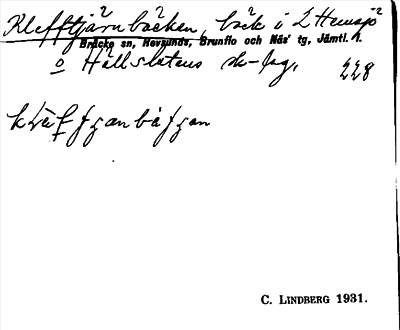 Klefftjärnbäcken, bäck i L Hemsjö
Bräcke sn, Revsunds, Brunflo och Näs' tg, Jämtl. l.
o Hällslätens sk-lag. 228
C. LINDBERG 1931.